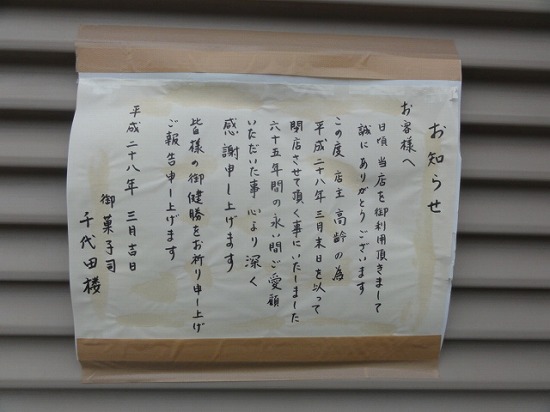 お知らせ
お客様へ
日頃 当店を御利用頂きまして
誠にありがとうございます
この度 店主 高齢の為
平成二十八年 三月末日を以って
閉店させて頂く事にいたしました
六十五年間の永い間ご愛顧
いただいた事 心より深く
感謝申し上げます
皆様の御健勝をお祈り申し上げ
ご報告申し上げます
平成二十八年 三月吉日
御菓子司
千代田楼